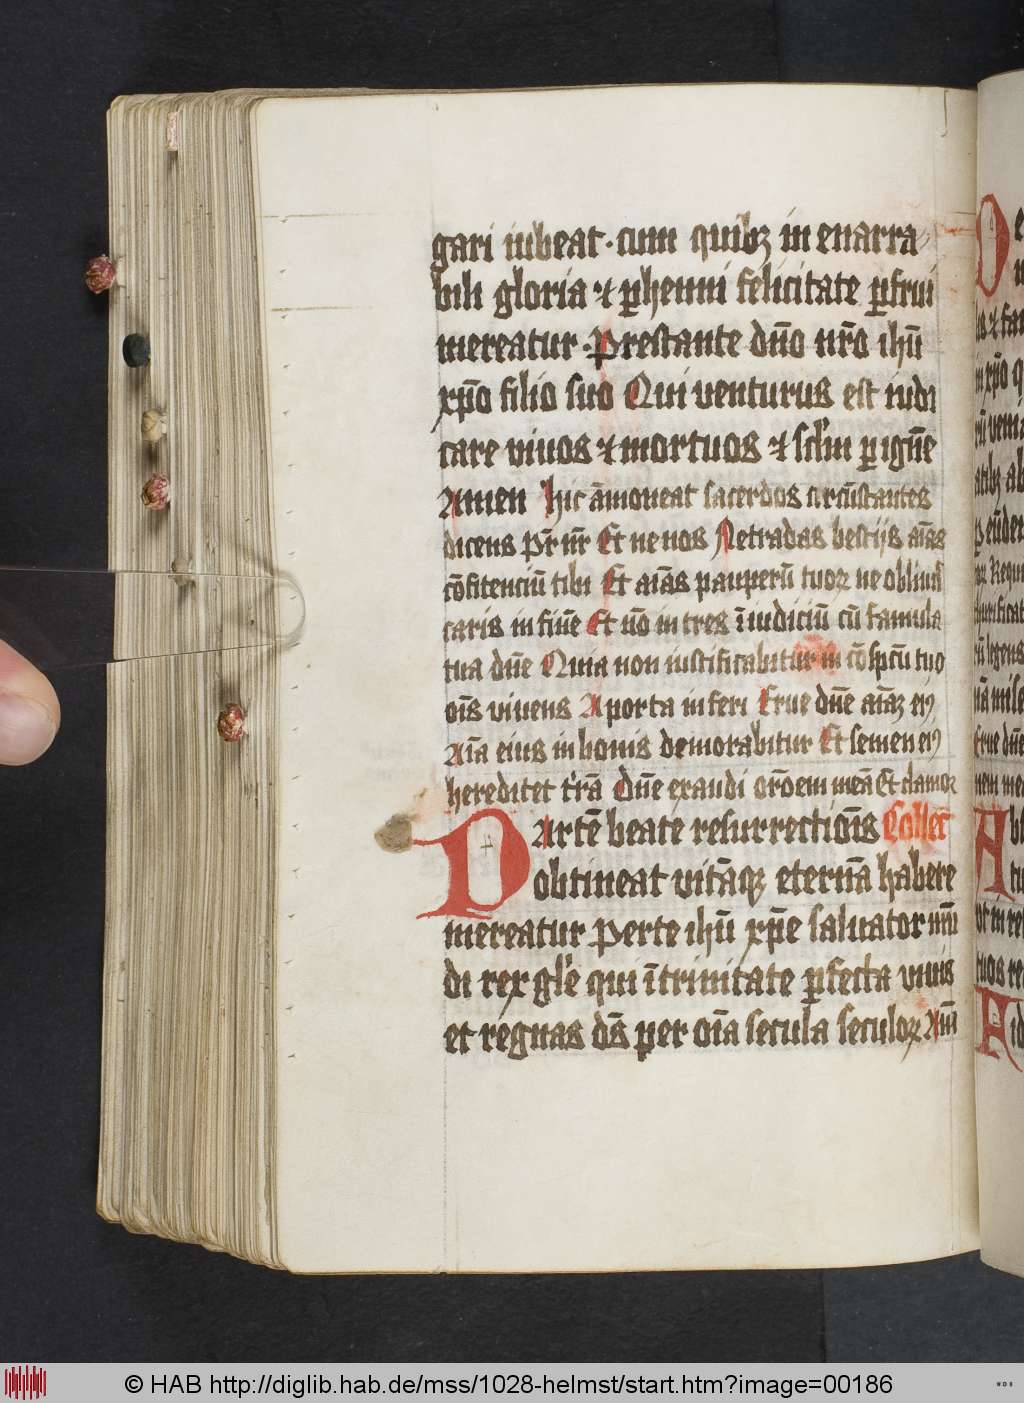 gari iubeat · cum quibꝫ in enarra
bili gloria ⁊ ꝑhenni felicitate ꝑfrui
mereatur · Prestante dn̄o nr̄o ihū
xp̄o filio suo Qui venturus est iudi
care viuos ⁊ mortuos ⁊ sc̄lm ꝑ ignē
Amen hic āmoneat sacerdos circūstantes
dicens Pr̄ nr̄ Et ne nos Ne tradas bestijs aīas
cōfitenciū tibi Et aīas pauperū tuoꝝ ne obliuis
caris in finē Et nō intres ī iudiciū cū famula
tua dn̄e Quia non iustificabitur in cōspcū tuo
oīs viuens A porta inferi Erue dn̄e aīaꝫ eiꝯ
Aīa eius in bonis demorabitur Et semen eiꝯ
hereditet t̄rā Dn̄e exaudi orōem meā Et clamor
PArtē beate resurrectiōis Collec̄
obtineat vitāqꝫ eternā habere
mereatur per te ihū xp̄e saluator mū
di rex gl̄e qui ī trinitate ꝑfecta viuis
et regnas ds̄ per oīa secula seculoꝝ Am̄
© HAB http://diglib.hab.de/mss/1028-helmst/start.htm?image=00186